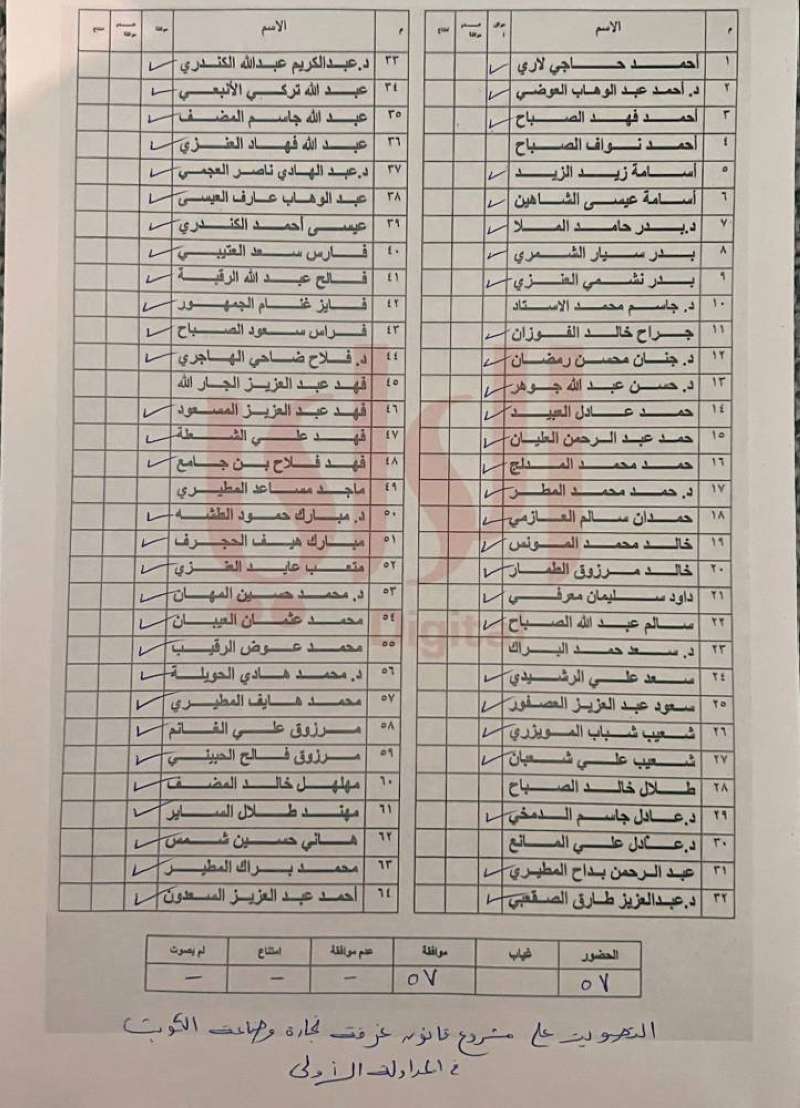 م الاسم موافقة عـــدم موافقة امتناع
١ أحمـــد حـــاجي لاري
٢ د. أحمد عبد الوهاب العوضي
٣ أحمـد فهـد الصـباح
٤ أحمـد نـواف الصـباح
٥ أسـامة زيـد الزيـد
٦ أسامة عيسى الشاهين
٧ د.بـدر حامـد المـلا
٨ بـدر سيار الشـمري
٩ بـدر نشمي العنـزي
١٠ د. جاسم محمـد الاستاد
١١ جـراح خالـد الفـوزان
١٢ د. جنان محسن رمضان
١٣ د. حسن عبد الله جوهر
١٤ حمـد عـادل العبيـد
١٥ حمد عبد الـرحمن العليان
١٦ حمـد محمـد المـدلج
١٧ د. حمـد محمـد المطـر
١٨ حمـدان سـالم العـازمي
١٩ خالـد محمـد المـونس
٢٠ خالـد مـرزوق الطمـار
٢١ داود سـليمان معرفـي
٢٢ سـالم عبـد الله الصـباح
٢٣ د. سـعد حمـد البـراك
٢٤ سـعد علـي الرشـيدي
٢٥ سعود عبد العزيز العصفور
٢٦ شـعيب شـباب المـويزري
٢٧ شـعيب علـي شـعبان
٢٨ طـلال خالـد الصـباح
٢٩ د.عـادل جاسم الـدمخي
٣٠ د.عـادل علـي المـانع
٣١ عبد الرحمن بداح المطيري
٣٢ د.عبدالعزيز طارق الصقعبي
م الاسم موافقة عـــدم موافقة امتناع
٣٣ د.عبدالكريم عبدالله الكندري
٣٤ عبـد الله تركـي الأنبعي
٣٥ عبـد الله جاسم المضـف
٣٦ عبـد الله فهـاد العنـزي
٣٧ د.عبد الهادي ناصر العجمي
٣٨ عبد الوهاب عارف العيسى
٣٩ عيسـى أحمـد الكنـدري
٤٠ فـارس سـعد العتيبـي
٤١ فـالح عبـد الله الرقبـة
٤٢ فـايز غنـام الجمهـور
٤٣ فـراس سـعود الصـباح
٤٤ د. فـلاح ضاحي الهاجري
٤٥ فهـد عبـد العزيز الجـار الله
٤٦ فهـد عبـد العزيز المسعود
٤٧ فهـد علـي الشـعلة
٤٨ فهـد فـلاح بـن جـامع
٤٩ ماجـد مساعـد المطيـري
٥٠ د. مبـارك حمـود الطشـه
٥١ مبـارك هيـف الحجـرف
٥٢ متعـب عايـد العنـزي
٥٣ د. محمـد حسـين المهـان
٥٤ محمـد عثمـان العيبـان
٥٥ محمـد عـوض الرقيـب
٥٦ د. محمـد هـادي الحويلـة
٥٧ محمـد هـايف المطيـري
٥٨ مـرزوق علـي الغـانم
٥٩ مـرزوق فـالح الحبينـي
٦٠ مهلهـل خالـد المضـف
٦١ مهنـد طـلال السـاير
٦٢ هـاني حسـين شـمس
٦٣ محمـد بـراك المطيـر
٦٤ أحمد عبد العزيز السعدون
الحضور غياب موافقة عدم موافقة امتناع لم يصوت
٥٧ ٥٧ – – –
التصويت على مشروع قانون غرفة تجارة وصناعة الكويت
في المداولة الأولى
الراي
Digital